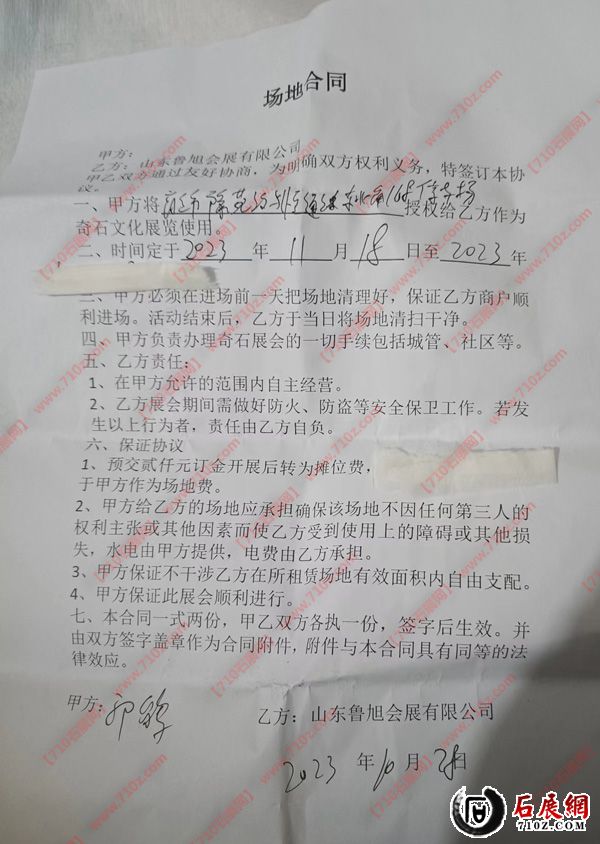 场地合同
甲方：
乙方：山东鲁旭会展有限公司
甲乙双方通过友好协商，为明确双方权利义务，特签订本协
议。
一、甲方将 授权给乙方作为
奇石文化展览使用。
二、时间定于2023年11月18日至2023年
三、甲方必须在进场前一天把场地清理好，保证乙方商户顺
利进场。活动结束后，乙方于当日将场地清扫干净。
四、甲方负责办理奇石展会的一切手续包括城管、社区等。
五、乙方责任：
1、在甲方允许的范围内自主经营。
2、乙方展会期间需做好防火、防盗等安全保卫工作。若发
生以上行为者，责任由乙方自负。
六、保证协议
1、预交贰仟元订金开展后转为摊位费，
于甲方作为场地费。
2、甲方给乙方的场地应承担确保该场地不因任何第三人的
权利主张或其他因素而使乙方受到使用上的障碍或其他损
失，水电由甲方提供，电费由乙方承担。
3、甲方保证不干涉乙方在所租赁场地有效面积内自由支配。
4、甲方保证此展会顺利进行。
七、本合同一式两份，甲乙双方各执一份，签字后生效。并
由双方签字盖章作为合同附件，附件与本合同具有同等的法
律效应。
甲方： 乙方：山东鲁旭会展有限公司
2023年10月 日
石展網
710Z.COM